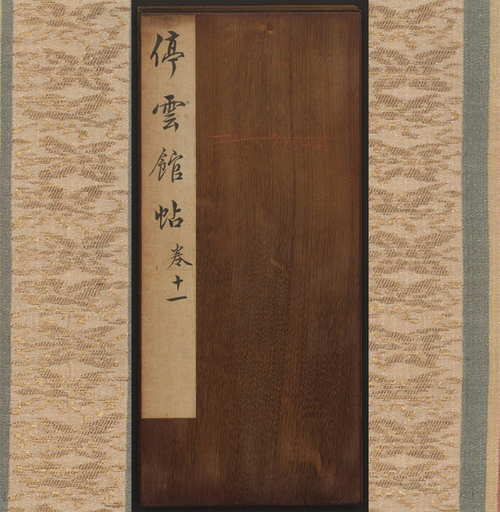 停雲館帖 卷十一